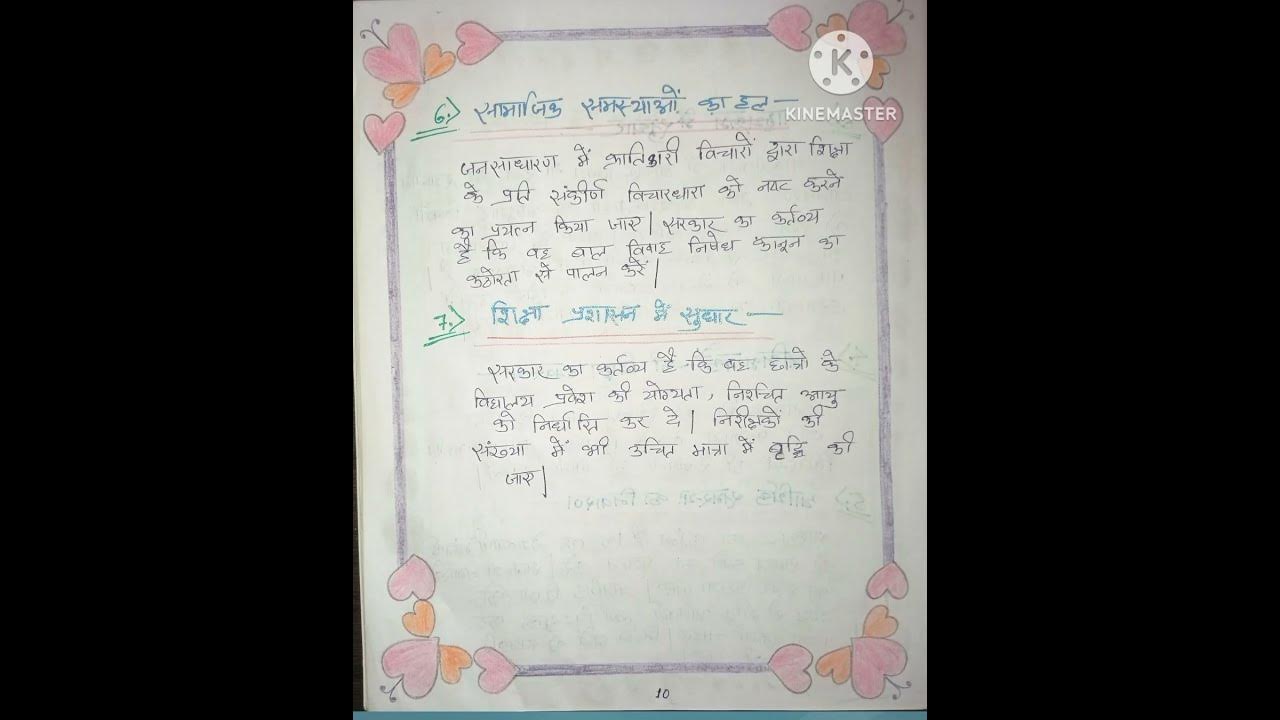 6.> सामाजिक समस्याओं का हल —
जनसाधारण में क्रातिकारी विचारों द्वारा शिक्षा
के प्रति संकीर्ण विचारधारा को नष्ट करने
का प्रयत्न किया जाए| सरकार का कर्तव्य
है कि वह बाल विवाह निषेध कानून का
कठोरता से पालन करें|
7.> शिक्षा प्रशासन में सुधार —
सरकार का कर्तव्य है कि वह छात्रो के
विद्यालय प्रवेश की योग्यता, निश्चित आयु
को कर दे| निरीक्षकों की
संख्या में भी उचित मात्रा में वृद्धि की
जाए|
10
K
KINEMASTER